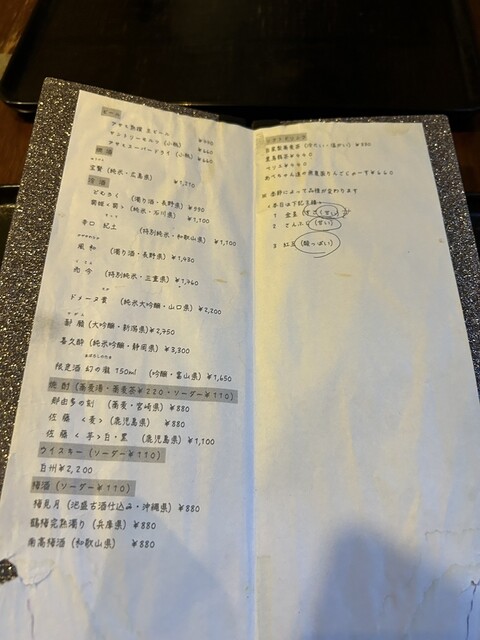 ビール
アサヒ熟撰 生ビール ¥990
サントリーモルツ (小瓶) ¥660
アサヒスーパードライ (小瓶) ¥660
燗酒
宝賢 (純米・広島県) ¥1,210
冷酒
どむろく (濁り酒・長野県) ¥990
菊姫 (純米・石川県) ¥1,100
辛口 紀土 (特別純米・和歌山県) ¥1,100
風和 (濁り酒・長野県) ¥1,430
而今 (特別純米・三重県) ¥1,760
ドメーヌ貴 (純米大吟醸・山口県) ¥2,200
(大吟醸・新潟県) ¥2,750
喜久酔 (純米吟醸・静岡県) ¥3,300
限定酒 幻の瀧 150ml (吟醸・富山県) ¥1,650
焼酎 (蕎麦湯・蕎麦茶¥220・ソーダー¥110)
那由多の刻 (蕎麦・宮崎県) ¥880
佐藤 <麦> (鹿児島県) ¥880
佐藤 <芋> 白・黒 (鹿児島県) ¥1,100
ウイスキー (ソーダー¥110)
白州¥2,200
梅酒 (ソーダー¥110)
梅見月 (泡盛古酒仕込み・沖縄県) ¥880
鶴梅完熟濁り (兵庫県) ¥880
南高梅酒 (和歌山県) ¥880
ソフトドリンク
¥550
¥660
※ 季節によって品種が変わります
本日は下記3種
1
2 さんふじ (甘い)
3 紅玉 (酸っぱい)